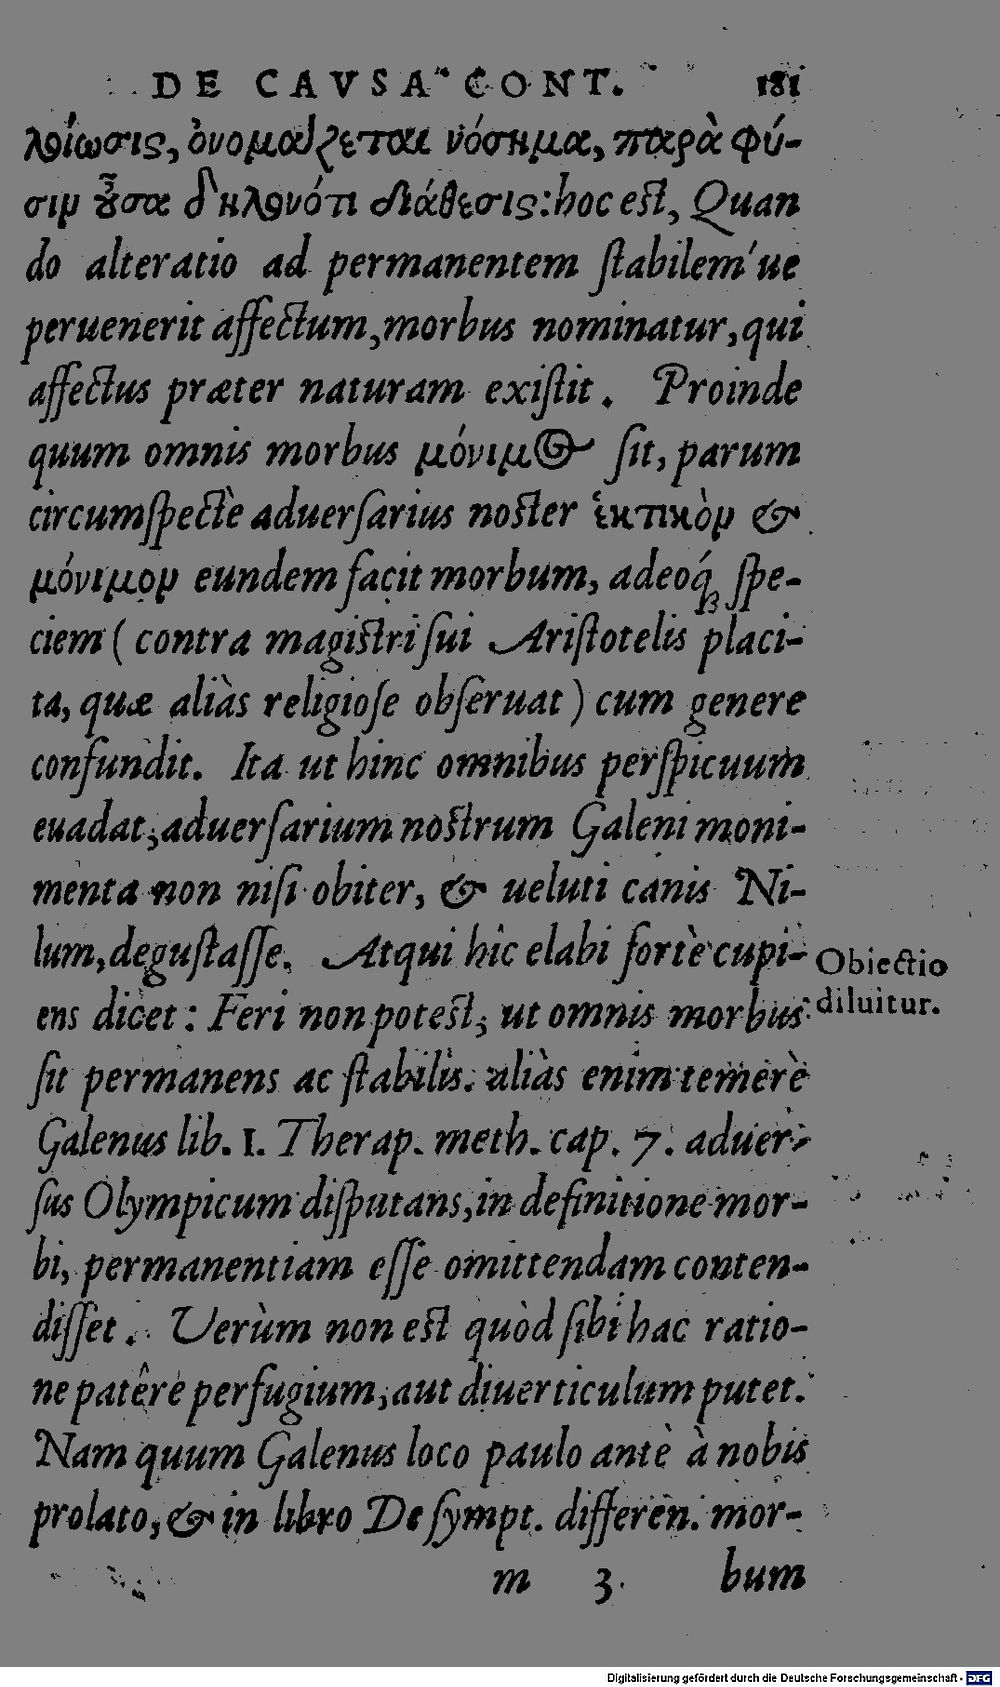 DE CAVSA CONT. 181
λοίωσις, ὀνομάζεται νόσημα, παρὰ φύ-
σιν οὖσα δηλονότι διάθεσις: hoc est, Quan
do alteratio ad permanentem stabilem´ue
peruenerit affectum, morbus nominatur, qui
affectus præter naturam existit. Proinde
quum omnis morbus μόνιμος sit, parum
circumspectè aduersarius noster ἑκτικὸν &
μόνιμον eundem facit morbum, adeoq́ꝫ spe-
ciem (contra magistri sui Aristotelis placi-
ta, quæ aliàs religiose obseruat) cum genere
confundit. Ita ut hinc omnibus perspicuum
euadat, aduersarium nostrum Galeni moni-
menta non nisi obiter, & ueluti canis Ni-
lum, degustasse. Atqui hic elabi fortè cupi-
ens dicet: Feri non potest, ut omnis morbus
sit permanens ac stabilis. aliàs enim temerè
Galenus lib. 1. Therap. meth. cap. 7. aduer-
sus Olympicum disputans, in definitione mor-
bi, permanentiam esse omittendam conten-
disset. Verùm non est quòd sibi hac ratio-
ne patêre perfugium, aut diuerticulum putet.
Nam quum Galenus loco paulo antè à nobis
prolato, & in libro De sympt. differen. mor-
m 3 bum
Obiectio
diluitur.
Digitalisierung gefördert durch die Deutsche Forschungsgemeinschaft - DFG